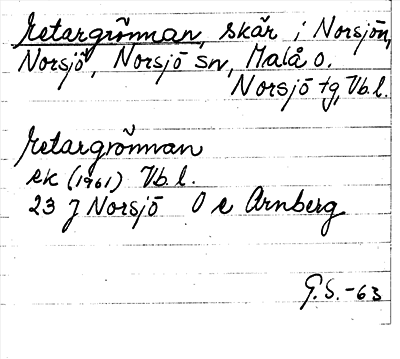 Ketargrönnan, skär i Norsjön,
Norsjö, Norsjö sn, Malå o.
Norsjö tg, Vb.l.
Ketargrönnan
ek (1961) Vb.l.
23 J Norsjö O e Arnberg
G.S.-63